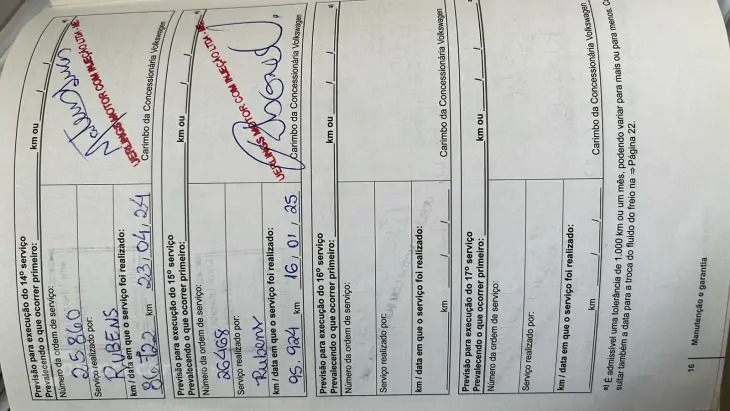 Previsão para execução do 14º serviço
Prevalecendo o que ocorrer primeiro: km ou / / a)
Número da ordem de serviço:
25860
Serviço realizado por:
RUBENS
km / data em que o serviço foi realizado:
86.722 km 23/04/24
UERLINGS MOTOR COM INJEÇÃO LTDA - ME
Carimbo da Concessionária Volkswagen
Previsão para execução do 15º serviço
Prevalecendo o que ocorrer primeiro: km ou / / a)
Número da ordem de serviço:
26468
Serviço realizado por:
Rubens
km / data em que o serviço foi realizado:
95.924 km 16/01/25
UERLINGS MOTOR COM INJEÇÃO LTDA - ME
Carimbo da Concessionária Volkswagen
Previsão para execução do 16º serviço
Prevalecendo o que ocorrer primeiro: km ou / / a)
Número da ordem de serviço:
Serviço realizado por:
km / data em que o serviço foi realizado:
km / /
Carimbo da Concessionária Volkswagen
Previsão para execução do 17º serviço
Prevalecendo o que ocorrer primeiro: km ou / / a)
Número da ordem de serviço:
Serviço realizado por:
km / data em que o serviço foi realizado:
km / /
Carimbo da Concessionária Volkswagen
a) É admissível uma tolerância de 1.000 km ou um mês, podendo variar para mais ou para menos.
sultar também a data para a troca do fluido do freio na ⇒ Página 22.
16 | Manutenção e garantia